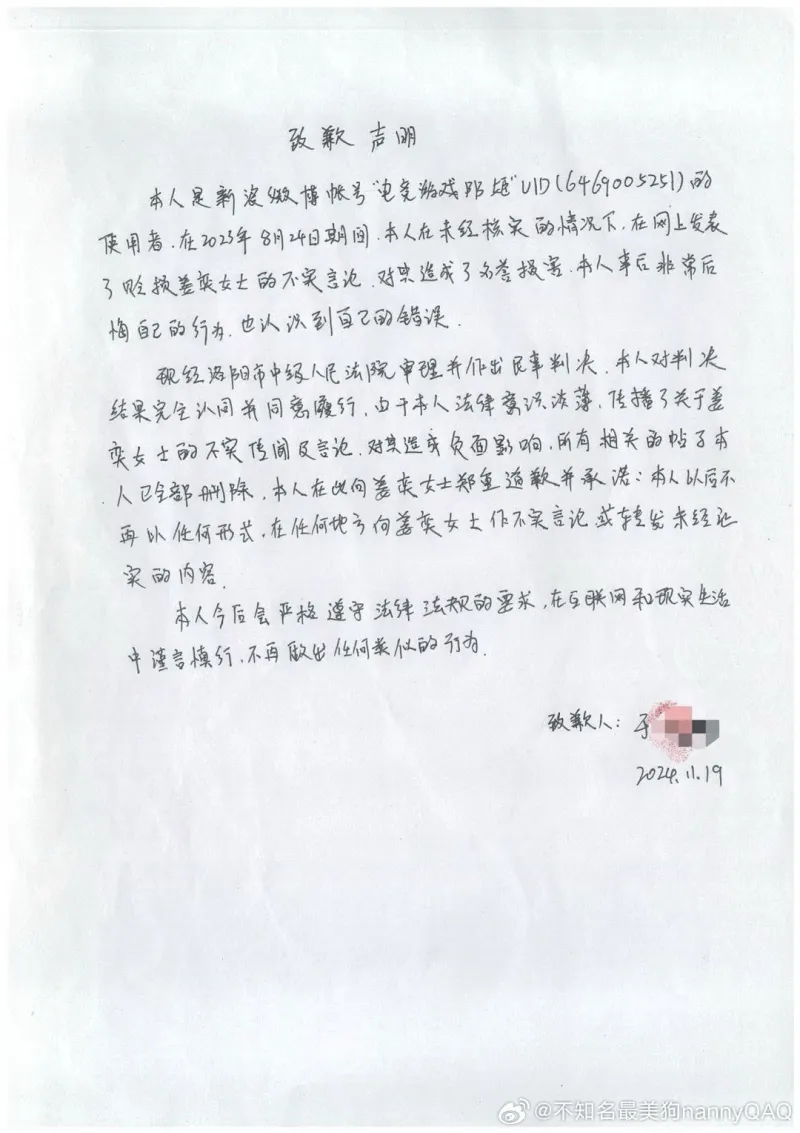 致歉声明
本人是新浪微博帐号"电竞游戏 "UID(6469005251)的
使用者.在2023年8月24日期间.本人在未经核实的情况下,在网上发表
了 姜奕女士的不实言论.对其造成了名誉损害.本人事后非常后
悔自己的行为.也认识到自己的错误.
现经 阳市中级人民法院审理并作出民事判决.本人对判决
结果完全认同并同意履行,由于本人法律意识淡薄,传播了关于姜
奕女士的不实传闻及言论.对其造成负面影响,所有相关的帖子本
人已全部删除,本人在此向姜奕女士郑重道歉并承诺:本人以后不
再以任何形式,在任何地方向姜奕女士作不实言论或转发未经证
实的内容.
本人今后会严格遵守法律法规的要求,在互联网和现实生活
中谨言慎行,不再做出任何类似的行为.
致歉人:于
2024.11.19
@不知名最美狗nannyQAQ